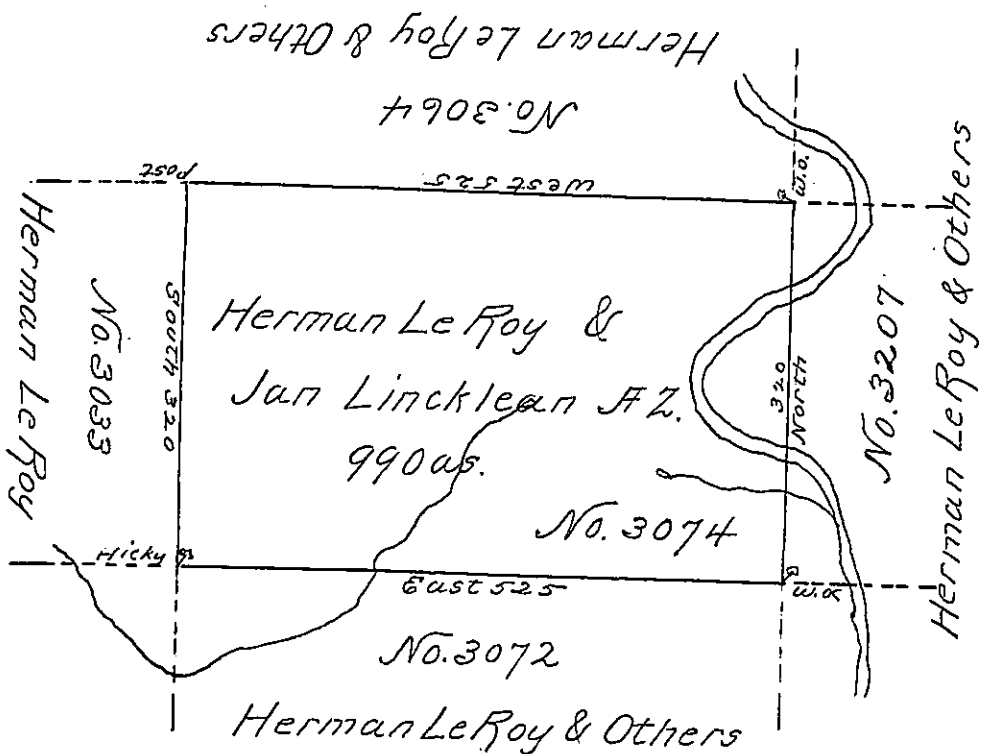 Herman LeRoy & Others
No. 3064
Post
West 525
W.O.
Herman LeRoy
No. 3033
South 320
Herman Le Roy &
Jan Lincklean AZ.
990as.
No. 3074
320
North
No. 3207
Herman LeRoy & Others
Hicky
East 525
No. 3072
Herman LeRoy & Others